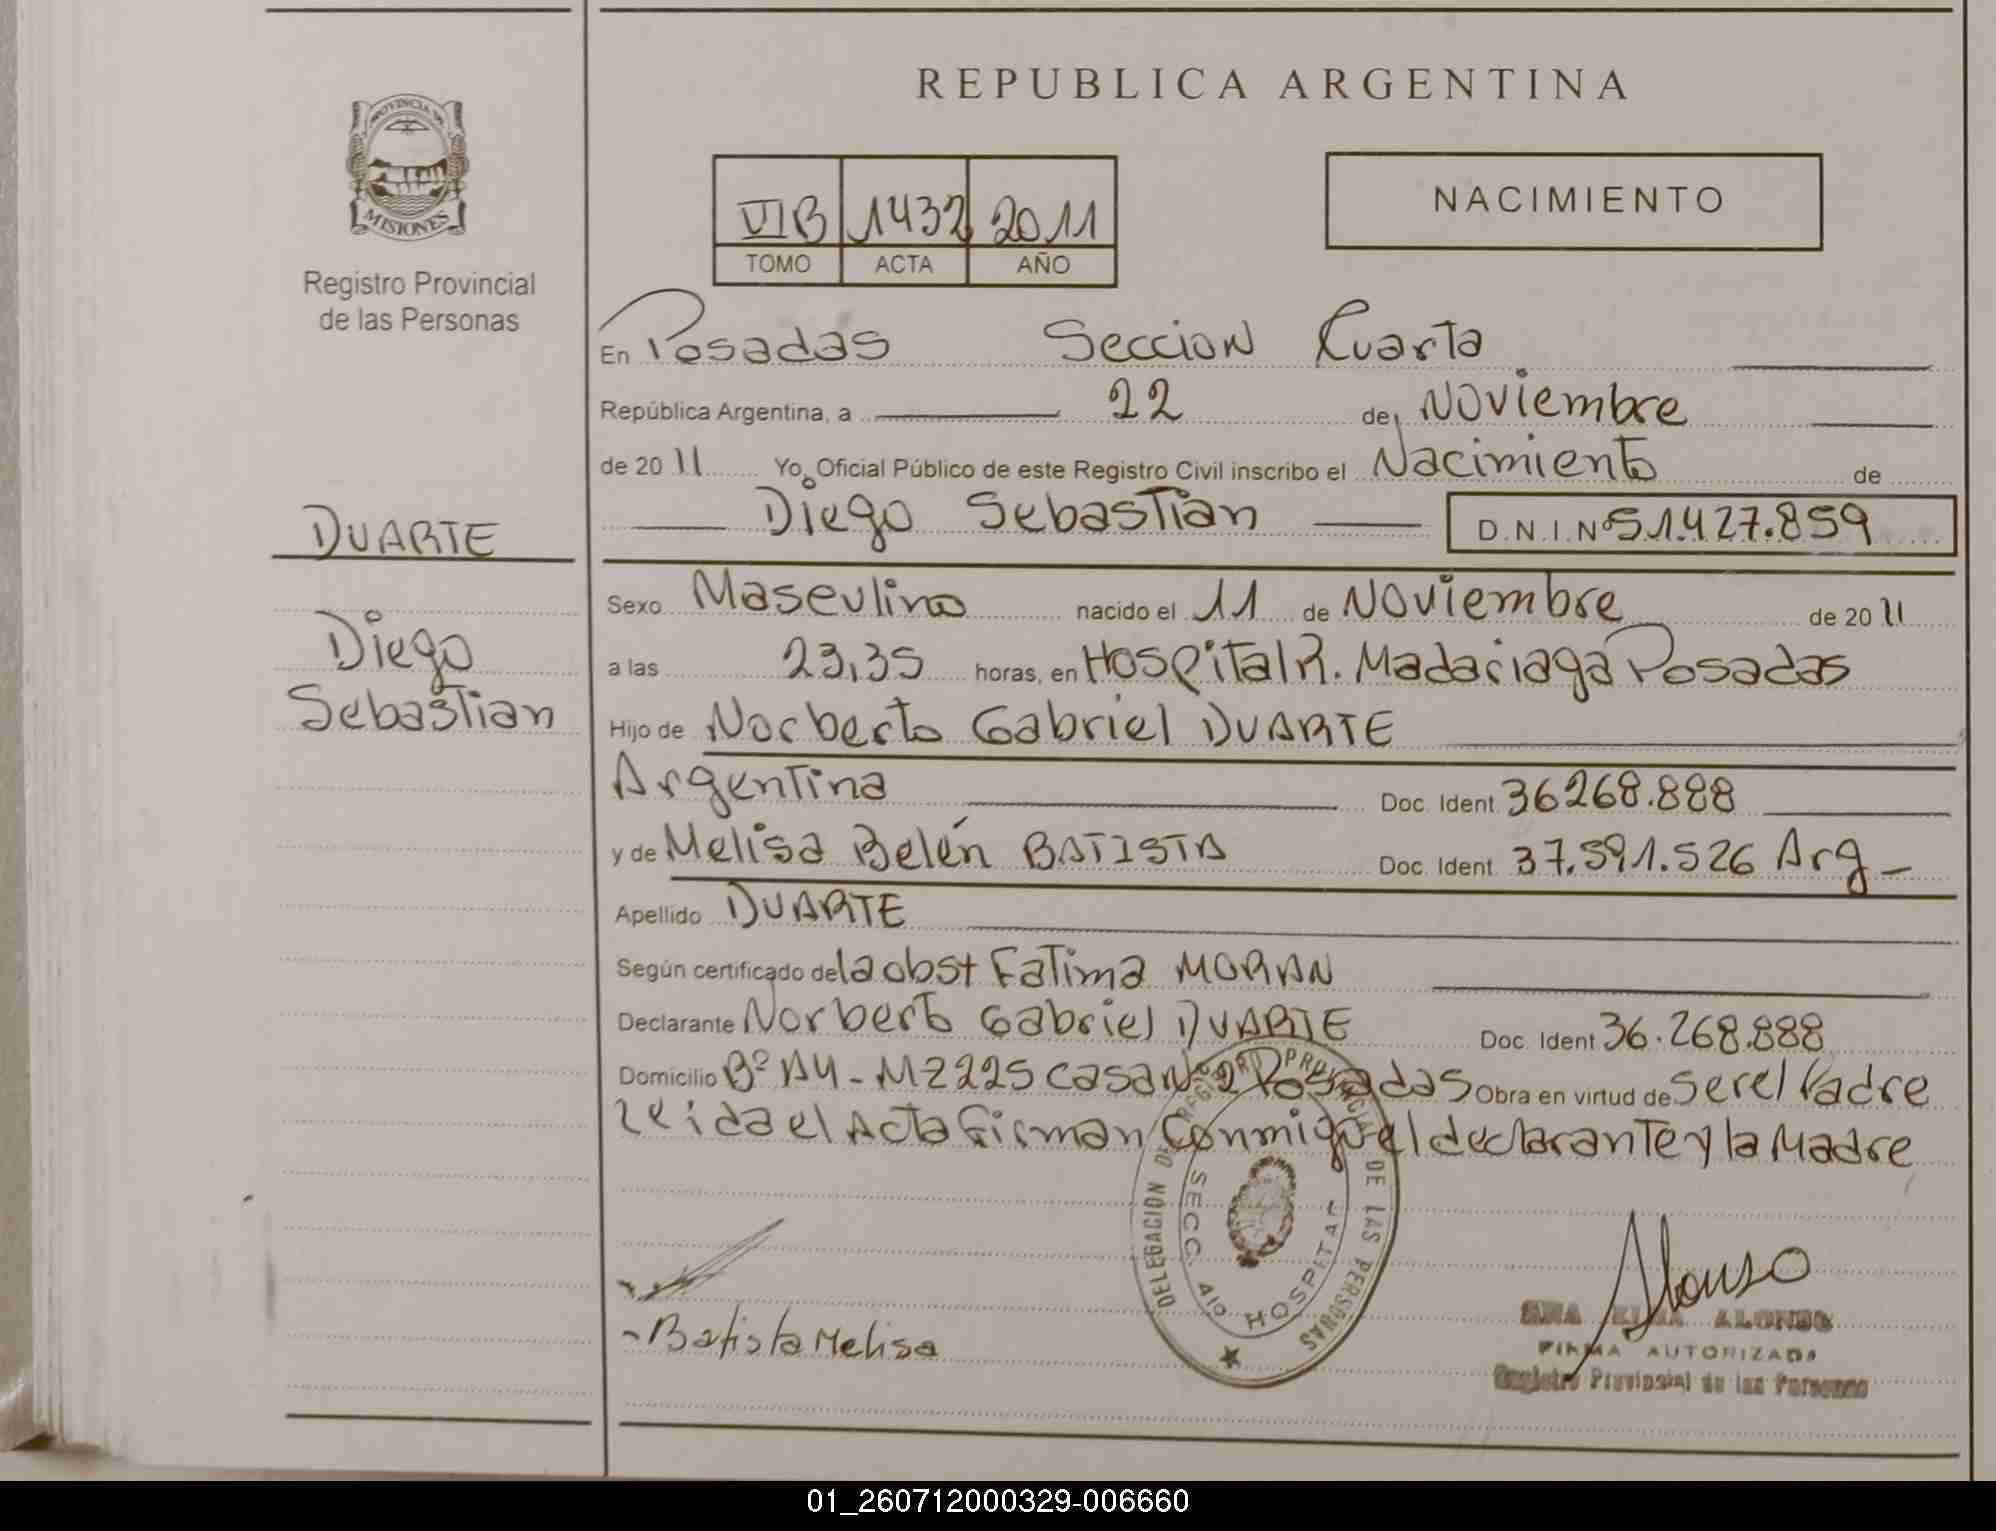 REPUBLICA ARGENTINA
PROVINCIA DE
MISIONES
Registro Provincial
de las Personas
VIB 1432 2011
TOMO ACTA AÑO
NACIMIENTO
En Posadas Seccion Cuarta
República Argentina, a 22 de Noviembre
de 20 11 Yo, Oficial Público de este Registro Civil inscribo el Nacimiento de
Diego Sebastian D.N.I.Nº 51.427.859
DUARTE
Diego
Sebastian
Sexo Masculino nacido el 11 de Noviembre de 20 11
a las 23,35 horas, en Hospital R. Madariaga Posadas
Hijo de Norberto Gabriel DUARTE
Argentina Doc. Ident. 36268.888
y de Melisa Belén BATISTA Doc. Ident. 37.591.526 Arg
Apellido DUARTE
Según certificado de la obst Fatima MORAN
Declarante Norberto Gabriel DUARTE Doc. Ident 36.268.888
Domicilio Bº A4 - MZ 225 casa Nº 2 Posadas Obra en virtud de Ser el Padre
Leida el Acta firman Conmigo el declarante y la Madre
DELEGACION DE REGISTRO PROVINCIAL DE LAS PERSONAS
SECC. 4ta HOSPITAL
Batista Melisa
Alonso
ANA ELBA ALONSO
FIRMA AUTORIZADA
Registro Provincial de las Personas
01_260712000329-006660